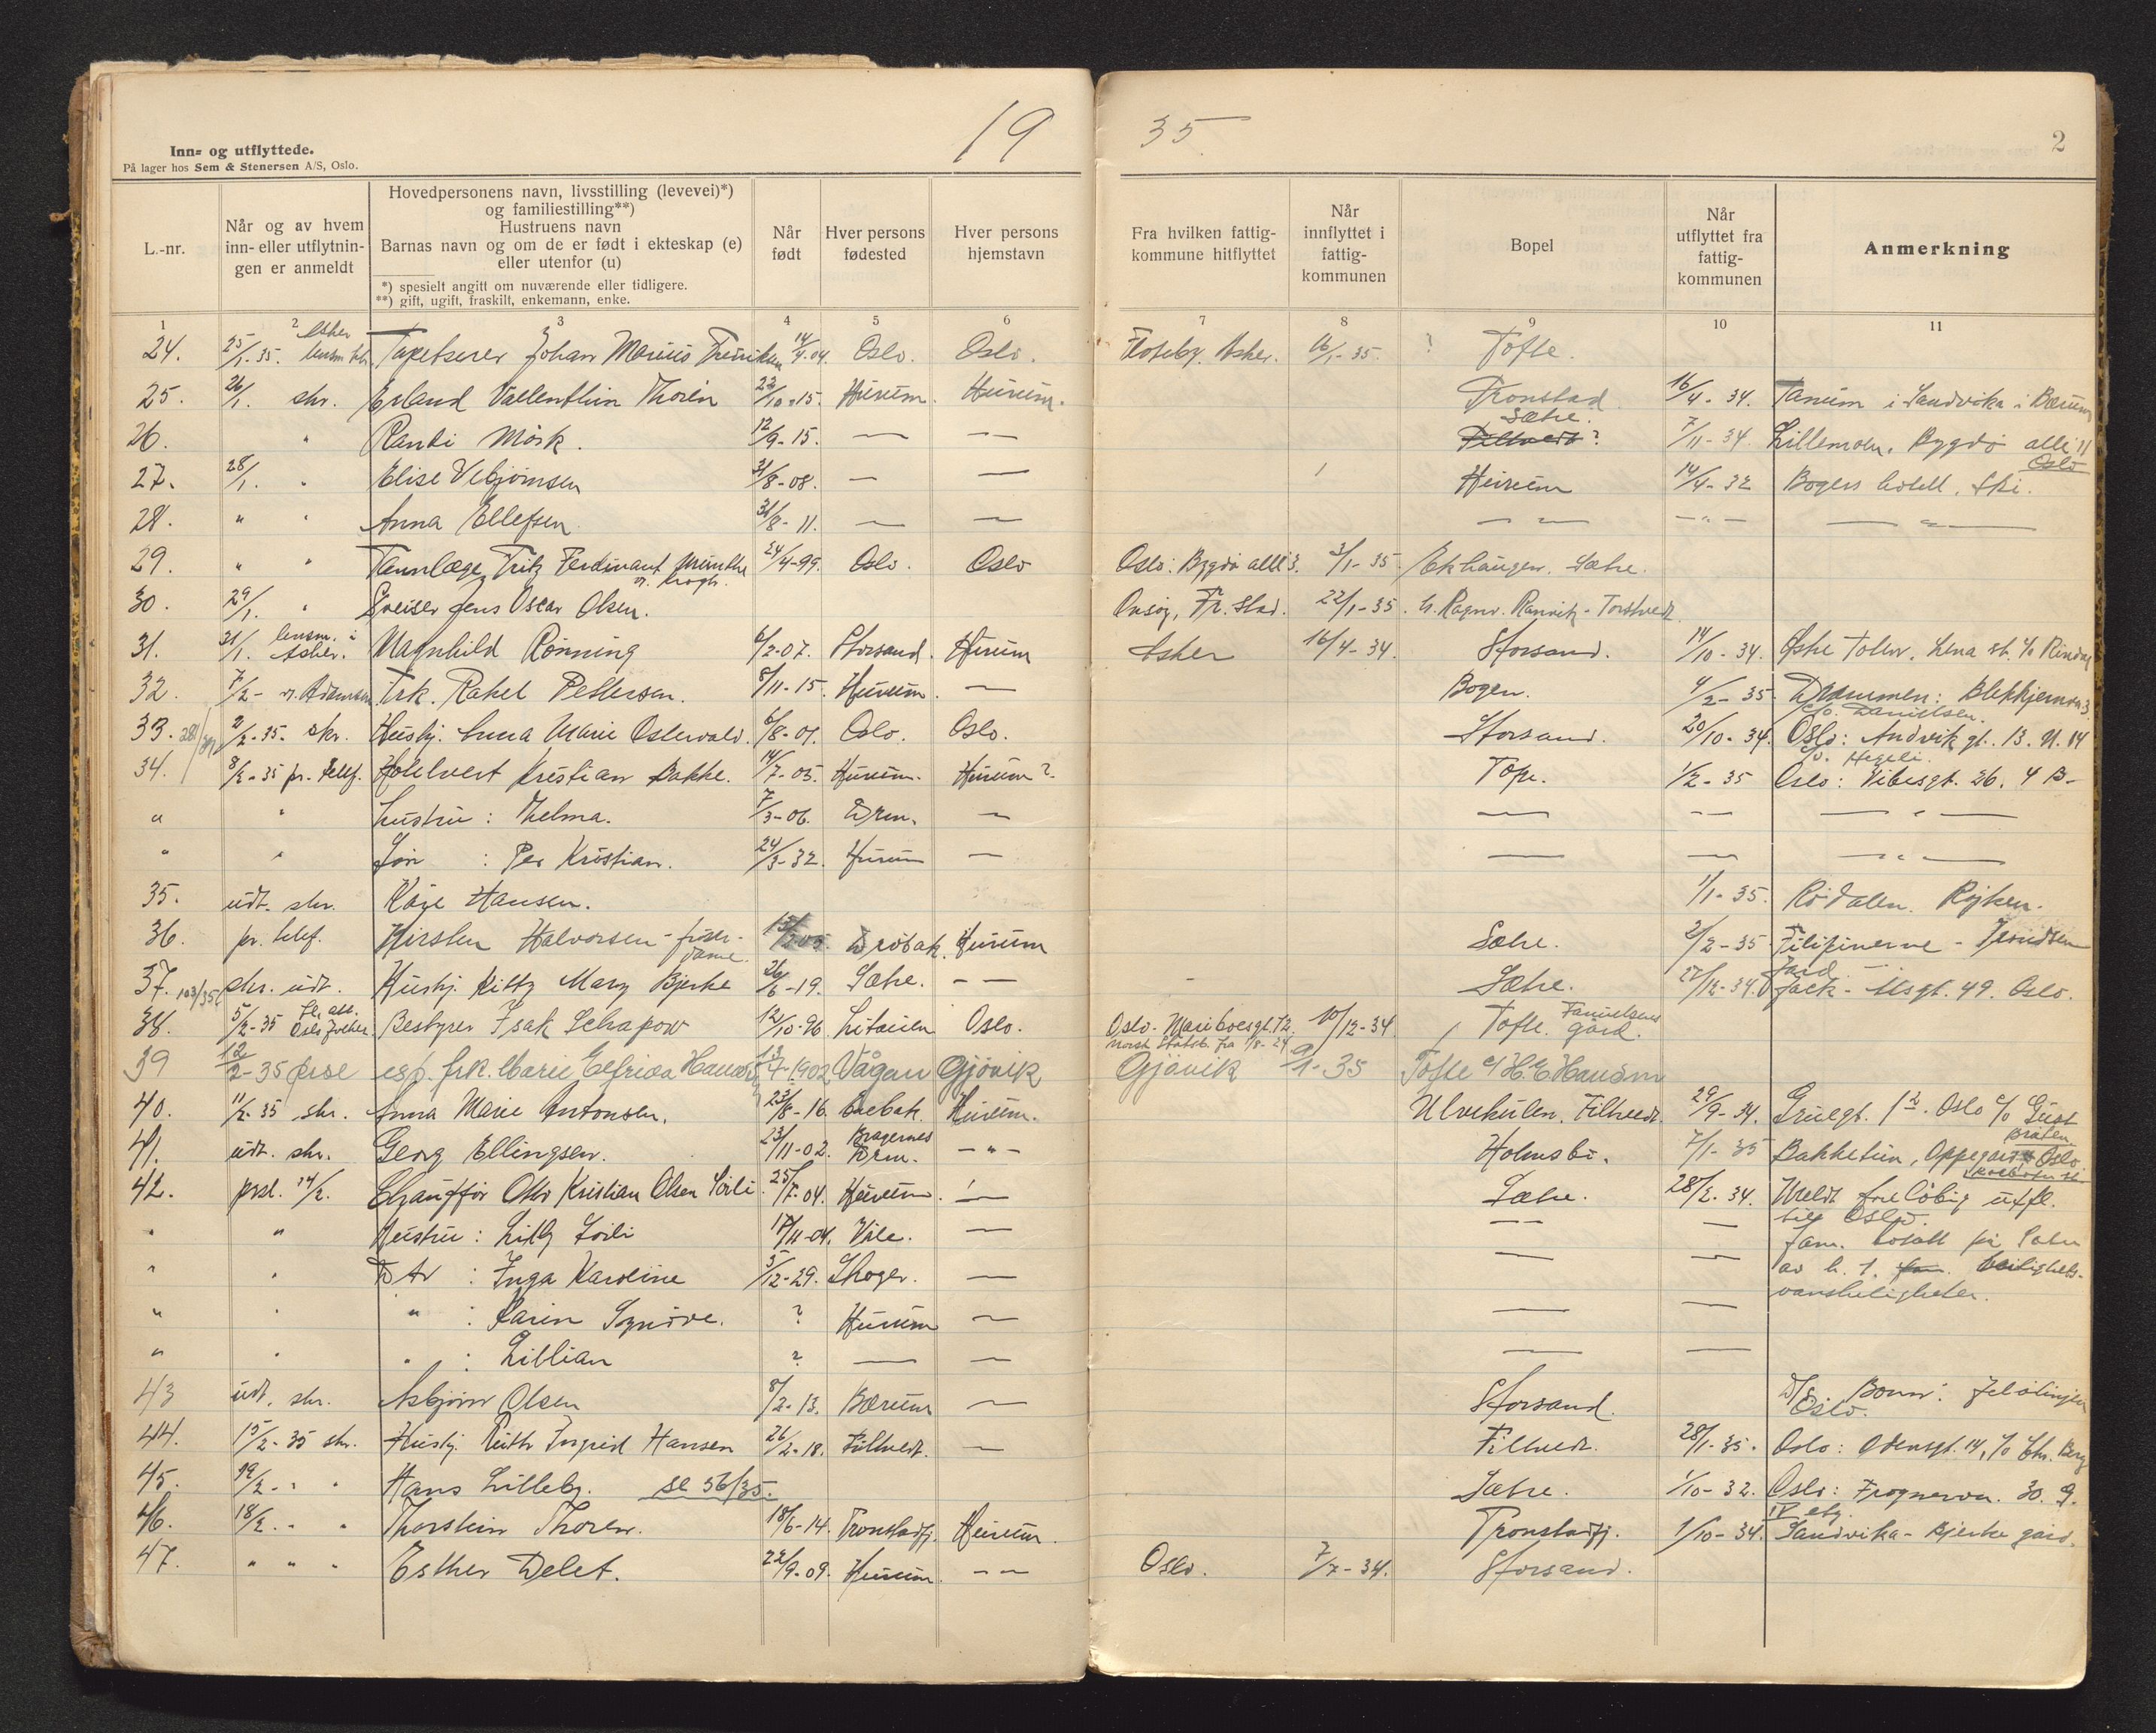 19 35
2
Inn- og utflyttede.
På lager hos Sem & Stenersen A/S, Oslo.
L.-nr.
Når og av hvem inn- eller utflytnin-gen er anmeldt
Hovedpersonens navn, livsstilling (levevei)*)
og familiestilling**)
Hustruens navn
Barnas navn og om de er født i ekteskap (e)
eller utenfor (u)
*) spesielt angitt om nuværende eller tidligere.
**) gift, ugift, fraskilt, enkemann, enke.
Når født
Hver persons fødested
Hver persons hjemstavn
Fra hvilken fattig-kommune hitflyttet
Når innflyttet i fattig-kommunen
Bopel
Når utflyttet fra fattig-kommunen
Anmerkning
1 2 3 4 5 6 7 8 9 10 11
24. 25/1-35. Asker lensm. Tapetserer Johan Marius Fredriksen 14/4-04. Oslo. Oslo. Asker. 16/1-35. ? Tofte.
25. 26/1. skr. Erland Vallenthin Thorén 22/10-15. Hurum. Hurum. Tronstad 16/4-34. Tanum i Sandvika i Bærum
26. " Randi Mörk. 12/9-15. — — Sætre. Filtvedt? 7/11-34. Lillemoen. Bygdö allé 11 Oslo
27. 28/1. " Elise Vebjörnsen 31/8-08. — — Hurum 14/4-32 Bogers hotell. Ski.
28. " " Anna Ellefsen 31/8-11. — — — " — — " — — " —
29. " " Tannlæge Fritz Ferdinant Munthe v. Krogh. 24/4-99. Oslo. Oslo Oslo: Bygdö allé 3. 3/1-35. Ekhaugen. Sætre.
30. 29/1. " Sveiser Jens Oscar Olsen. Onsöy, Fr.stad. 22/1-35. h. Ragnv. Ranvik - Torstvedt
31. 31/1. lensm. i Asker. Magnhild Rönning 6/2-07. Storsand. Hurum Asker 16/4-34. Storsand. 14/10-34. Östre Toten. Lena st. c/o Rindal
32. 7/2- Frk. Rakel Pettersen. 8/11-15. Hurum. — Bogen. 4/2-35. Drammen: Blekkjernsv. 3. c/o Danielsen.
33. 2/2-35. skr. Hushj. Anna Marie Osterwald. 6/8-01. Oslo. Oslo. Storsand. 20/10-34. Oslo: Andvik gt. 13. U. 14
34. 8/2-35 pr. telef. Kristian Bakke. 14/7-05. Hurum. Hurum? Tofte. 1/2-35 Oslo: Vibesgt. 26. 4 B-
" " hustru: Thelma. 7/3-06. Drm. — — — — " —
" " Sön : Per Kristian. 24/3-32. Hurum — — — — " —
35. udt. skr. Kåre Hansen. 1/1-35. Rödalen. Röyken.
36. pr. telef. Kirsten Halvorsen - frisör-dame. Dröbak. Hurum Sætre. 2/2-35 Filipinerne - Knudsen
37. 103/35 skr. udt. Hushj. Kitty Mary Bjerke 26/6-19. Sætre. — — Sætre. 27/12-34. Jack - Ilsgt. 49. Oslo.
38. 5/2-35 Bestyrer Isak Schapow 12/10-96 Litauen Oslo. Oslo - Mariboesgt. 12. norsk Statsb. fra 1/8-24 10/12-34 Tofte. Danielsens gård.
39 12/2-35 prse esp. frk. Marie Elfrida Hansen 13/4-1902 Vågan Gjövik Gjövik 9/1-35 Tofte c/ H. E. Hansen
40. 11/2-35 skr. Anna Marie Antonsen. 23/8-16. Hurum. Ulvekulen. Filtvedt. 29/9-34. Gruegt. 12. Oslo c/o Gust Bråten
41. udt. skr. Georg Ellingsen. 23/11-02. Bragernes Drm. — " — Holmsbu. 7/1-35 Bakketun, Oppegård Oslo
42. prsl. 14/2. Chaufför Olav Kristian Olsen Sörli. 25/5-04. Hurum. — Sætre. 28/2-34. Meldt foreløbig utfl. til Oslo.
" " Hustru: Lilly Sörli 17/11-04. Våle. — — — — Fam. bosatt på Sætre
" " Dtr : Inga Karoline 5/12-29. Skoger. — — — av h. t. boligheds-
" " " : Karin Synöve. ? Hurum — — — vanskeligheter.
" " " : Lillian ? — — — —
43 udt. skr. Asbjörn Olsen 8/2-13. Bærum — Storsand. D/S. Bonn: Fjeldlinjen Oslo.
44. 15/2-35 skr. Hushj. Ruth Ingrid Hansen 26/2-18. Filtvedt. — Filtvedt. 28/1-35. Oslo: Odensgt. 14, c/o Chr. Berg
45. 19/2. " " Hans Lilleby. se 56/35. Sætre. 1/10-32. Oslo: Frognervn. 30. IV etg.
46. 18/2. " " Thorstein Thoren. 18/6-14. Tronstadfj. Hurum. Tronstadfj. 1/10-34. Sandvika - Bjerke gård.
47. " " " Esther Delet. 22/9-09. Hurum. — — Oslo. 7/7-34. Storsand.